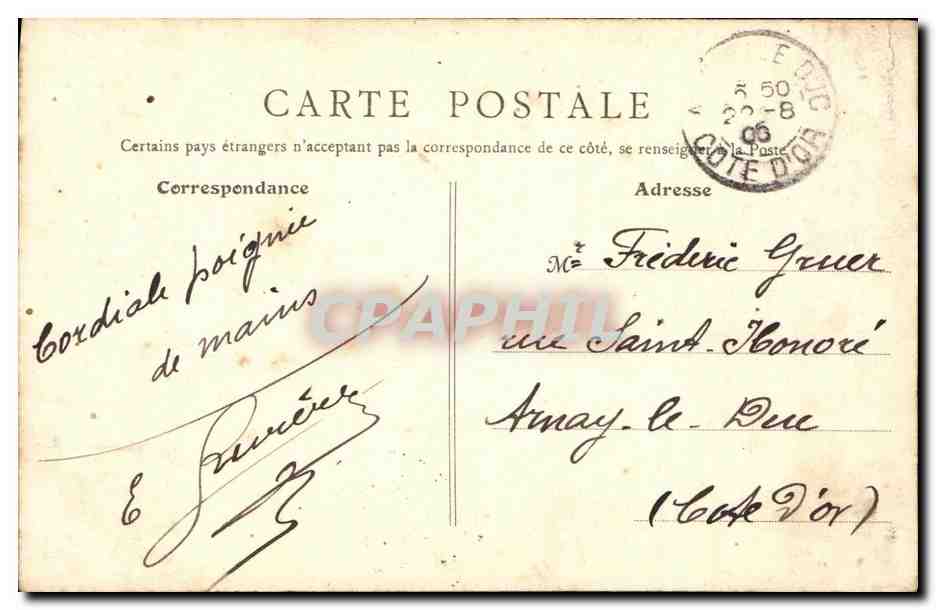 CARTE POSTALE
Certains pays étrangers n'acceptant pas la correspondance de ce côté, se renseigner à la Poste
Correspondance
Cordiale poignée
de mains
E
Adresse
Mr Fréderic Gruer
rue Saint-Honoré
Arnay-le-Duc
(Cote d'or)
E DUC
50
-8
06
COTE D'OR
CPAPHIL